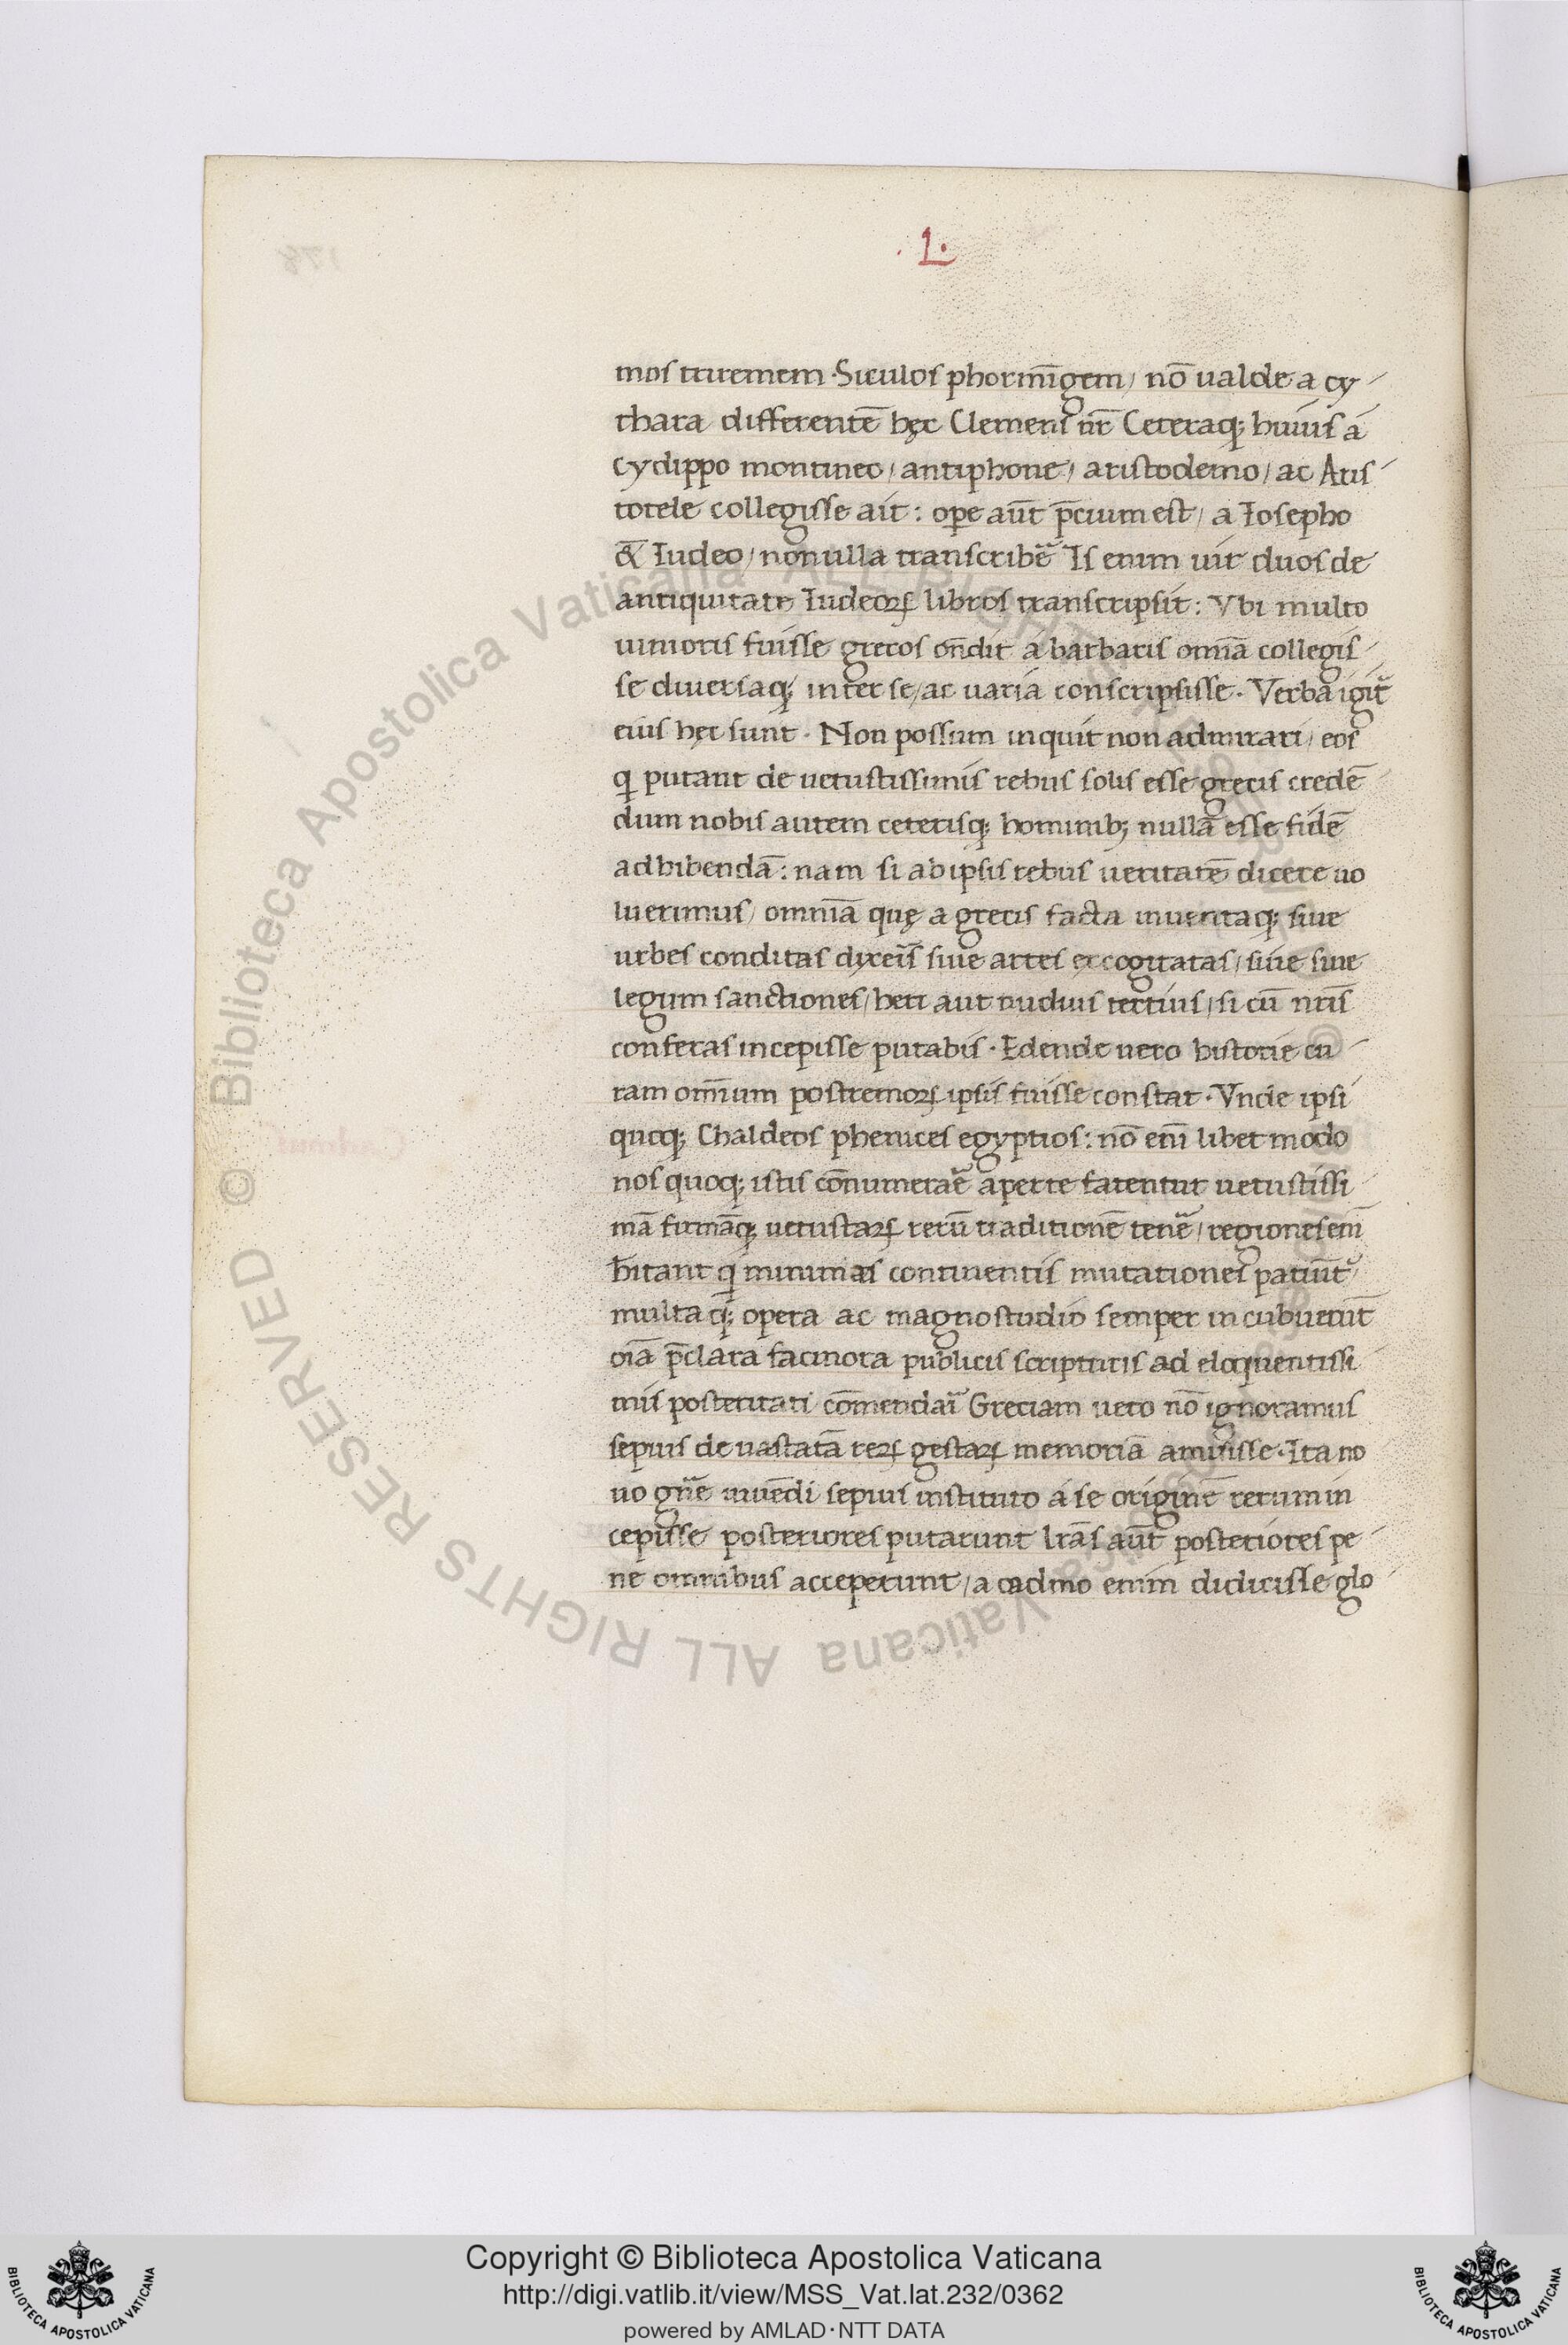 .L.
mos triremem · Siculos phormīgem / nō ualde a cy-
thara differentē hęc Clemens nr̄ Ceteraq; huius á
cydippo montineo / antiphone / aristodemo / ac Aris-
totele collegisse ait : ope aūt p̄cium est / a Iosepho
& Iudeo / nonulla transcribē Is enim uir duos de
antiquitate Iudeoꝝ libros transcripsit : Vbi multo
iunioris fuisse grecos on̄dit a barbaris omīa collegis-
se diuersaq; inter se / ac uaria conscripsisse · Verba igit̄
eius hęc sunt · Non possum inquit non admirari / eos
qi putant de uetustissimis rebus solis esse grecis credē-
dum nobis autem ceterisq; hominib; nullā esse fidē
adhibendā : nam si ab ipsis rebus ueritatē dicere uo
luerimus / omīa quę a grecis facta inuentaq; siue
urbes conditas dixeis̄ siue artes excogitatas / siue siue
legum sanctiones / heri aut nudius tertius / si cū nr̄is
conferas incepisse putabis · Edende uero historie cu-
ram omīum postremoꝝ ipsis fuisse constat · Vnde ipsi
quoq; Chaldeos phenices egyptios : nō enī libet modo
nos quoq; istis cōnumerāe aperte fatentur uetustissi-
mā firmāq; uetustaꝝ rerū traditionē tenē / regiones enī
hītant qi minimas continentis mutationes patiunt̄ /
multaq; opera ac magno studio semper incubuerūt
oīa p̄clara facinora publicis scripturis ad eloquentissi-
mis posteritati cōmendaī Greciam uero nō ignoramus
sepius deuastatā reꝝ gestaꝝ memoriā amisisse · Ita no
uo gn̄e uiuēdi sepius instituto á se originē rerum in
cepisse posteriores putarunt lr̄as aūt posteriores pe-
ne omnibus acceperunt / a cadmo enim didicisse glo-
Copyright © Biblioteca Apostolica Vaticana
http://digi.vatlib.it/view/MSS_Vat.lat.232/0362
powered by AMLAD·NTT DATA